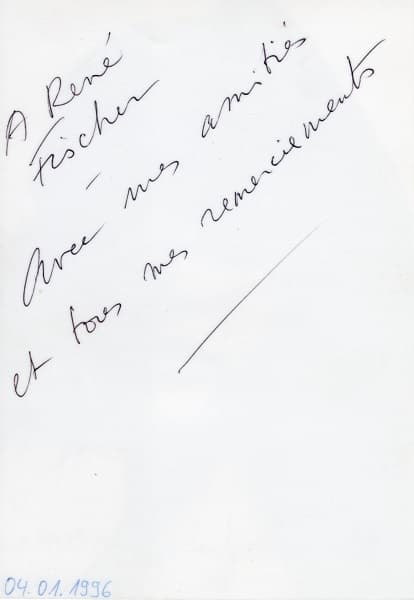 A René
Fischer
Avec mes amitiés
et tous mes remerciements
04.01.1996